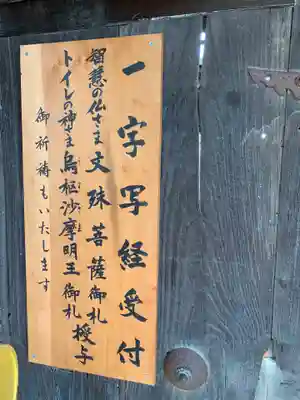 一字写経受付
智慧の仏さま文珠菩薩御札
トイレの神さま烏枢沙摩明王御札 授与
御祈祷もいたします